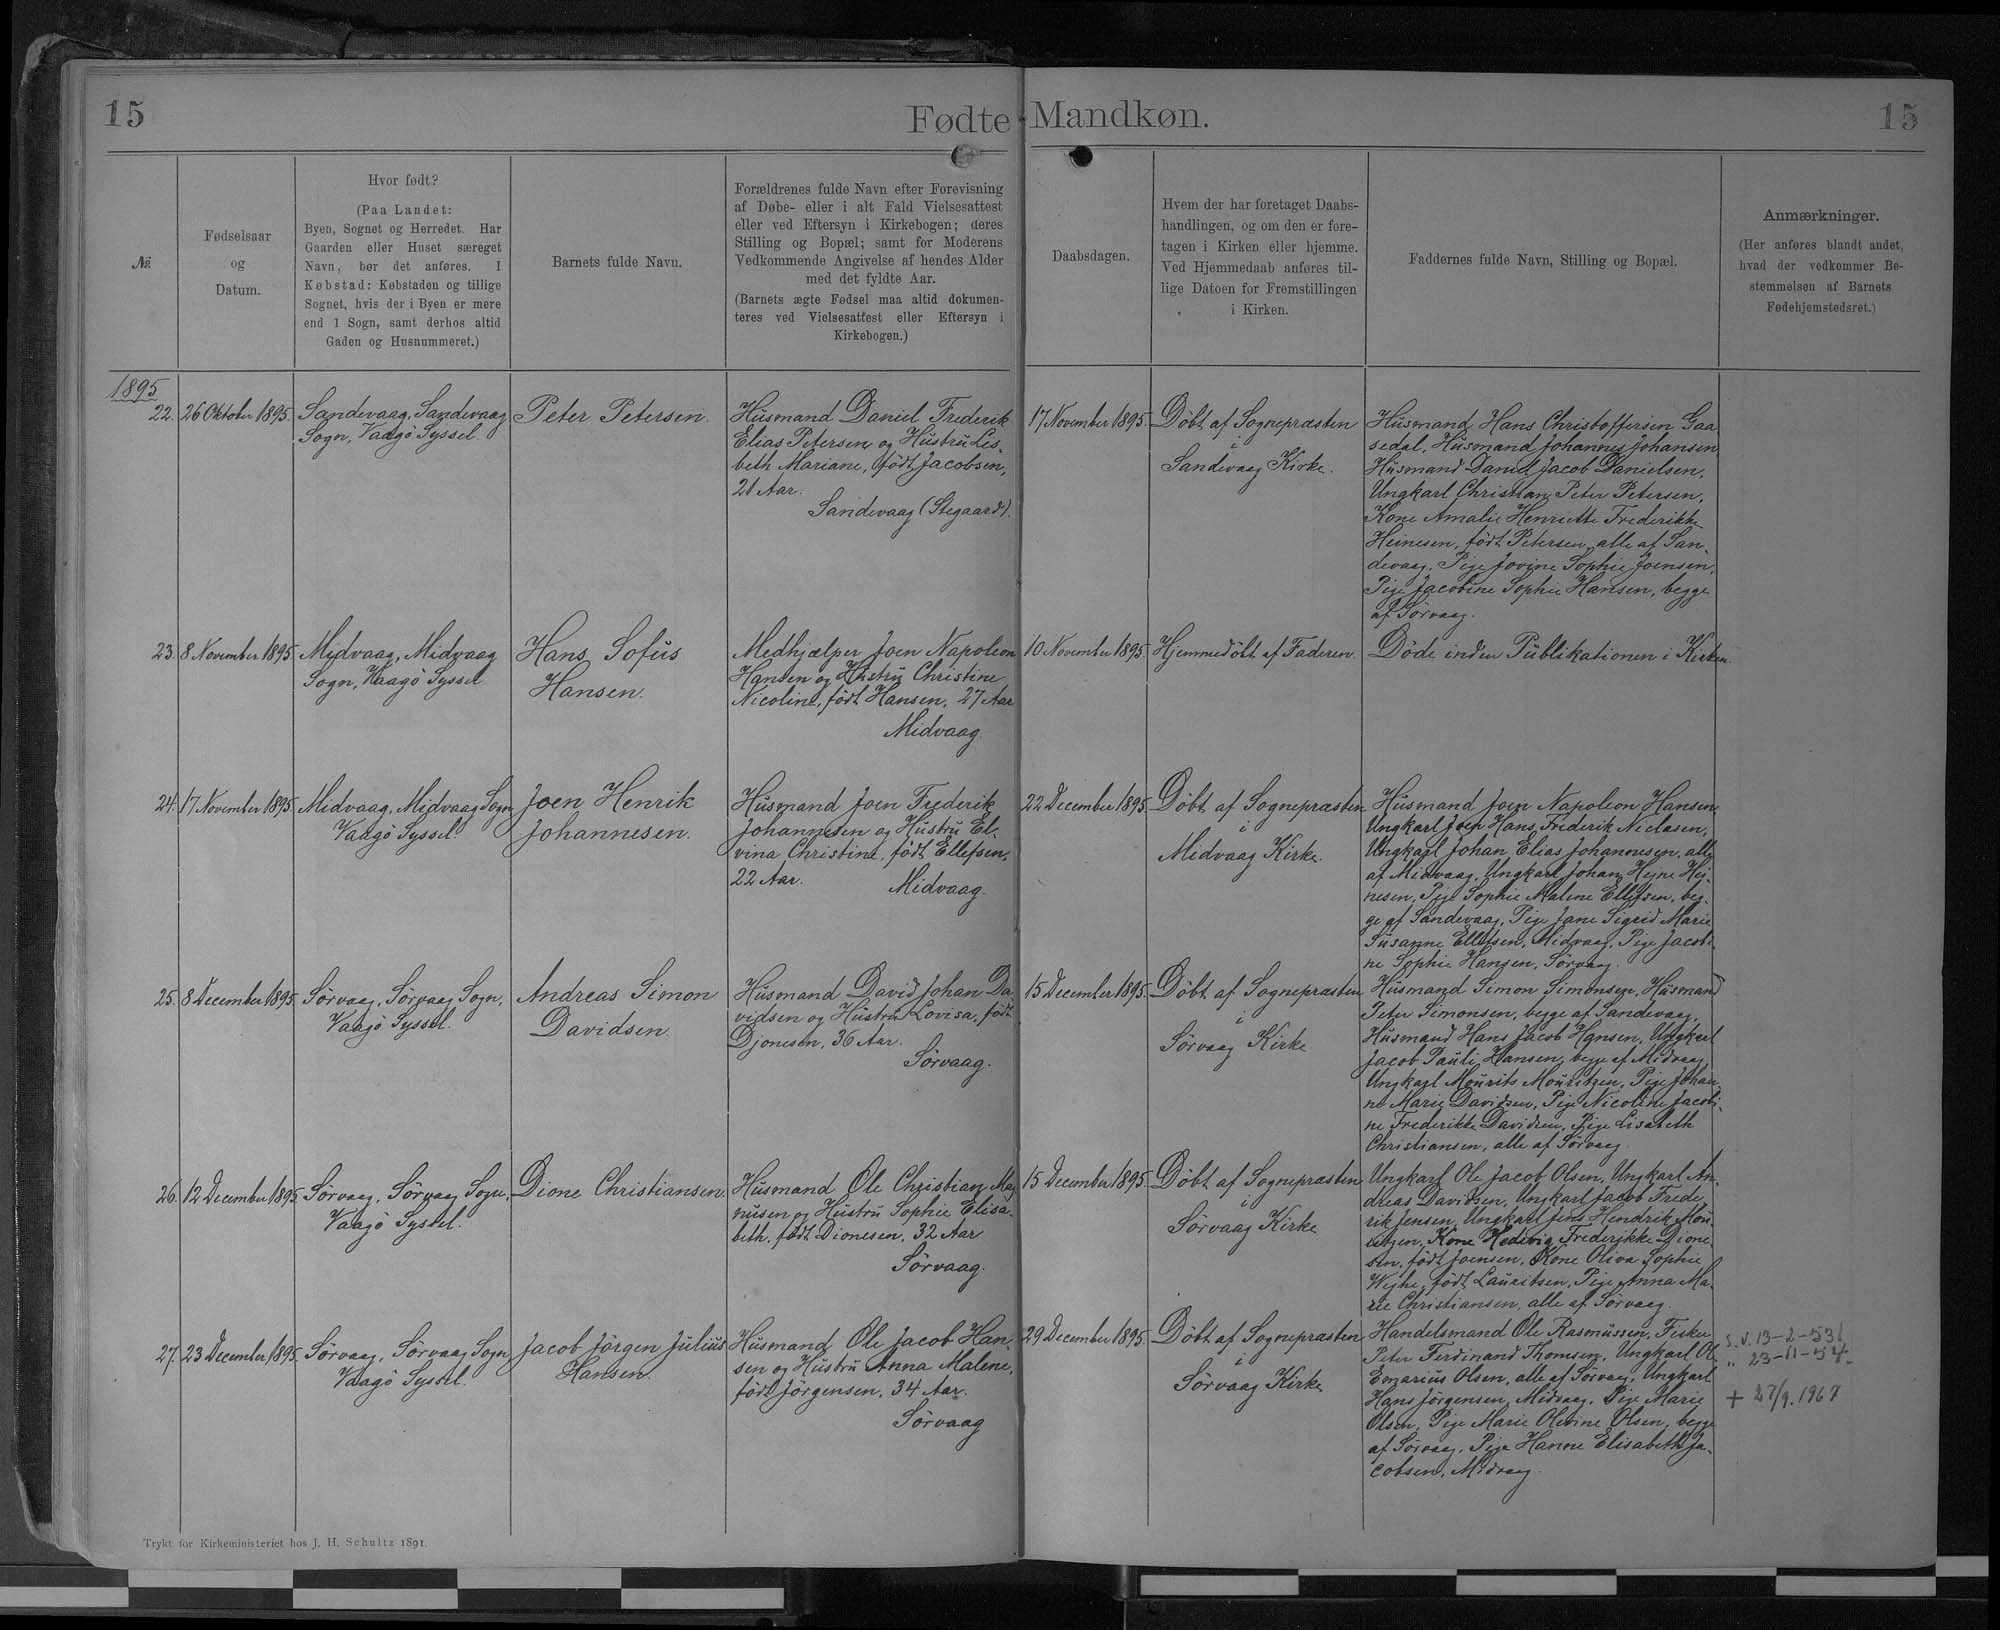 15
Fødte
Mandkøn.
15
№.
Fødselsaar
og
Datum.
Hvor født?
(Paa Landet:
Byen, Sognet og Herredet. Har
Gaarden eller Huset særeget
Navn, bør det anføres. I
Købstad: Købstaden og tillige
Sognet, hvis der i Byen er mere
end 1 Sogn, samt derhos altid
Gaden og Husnummeret.)
Barnets fulde Navn.
Forældrenes fulde Navn efter Forevisning
af Døbe- eller i alt Fald Vielsesattest
eller ved Eftersyn i Kirkebogen; deres
Stilling og Bopæl; samt for Moderens
Vedkommende Angivelse af hendes Alder
med det fyldte Aar.
(Barnets ægte Fødsel maa altid dokumen-
teres ved Vielsesattest eller Eftersyn i
Kirkebogen.)
Daabsdagen.
Hvem der har foretaget Daabs-
handlingen, og om den er fore-
tagen i Kirken eller hjemme.
Ved Hjemmedaab anføres til-
lige Datoen for Fremstillingen
i Kirken.
Faddernes fulde Navn, Stilling og Bopæl.
Anmærkninger.
(Her anføres blandt andet,
hvad der vedkommer Be-
stemmelsen af Barnets
Fødehjemstedsret.)
1895
22.
26 Oktober 1895.
Sandevaag, Sandevaag
Sogn, Vaagö Syssel.
Peter Petersen.
Husmand Daniel Frederik
Elias Petersen og Hustru Lis-
beth Mariane, född Jacobsen,
21 Aar.
Sandevaag (Stegaard).
17 November 1895.
Döbt af Sognepræsten
i
Sandevaag Kirke.
Husmand Hans Christoffersen Gaa
sedal, Husmand Johannes Johansen
Husmand Daniel Jacob Danielsen,
Ungkarl Christian Peter Petersen,
Kone Amalie Henriette Frederikke
Heinesen, født Petersen, alle af San-
devaag, Pige Jovine Sophie Joensen,
Pige Jacobine Sophie Hansen, begge
af Sörvaag.
23.
8 November 1895.
Midvaag, Midvaag
Sogn, Vaagö Syssel
Hans Sofus
Hansen.
Medhjælper Joen Napoleon
Hansen og Hustru Christine
Nicoline, født Hansen, 27 Aar
Midvaag.
10 November 1895.
Hjemmedöbt af Faderen.
Döde inden Publikationen i Kirken.
24.
17 November 1895.
Midvaag, Midvaag Sogn,
Vaagö Syssel.
Joen Henrik
Johannesen.
Husmand Joen Frederik
Johannesen og Hustru El-
vina Christine, født Ellefsen,
22 Aar.
Midvaag.
22 December 1895.
Döbt af Sognepræsten
i
Midvaag Kirke.
Husmand Joen Napoleon Hansen,
Ungkarl Joen Hans Frederik Niclasen,
Ungkarl Johan Elias Johannesen, alle
af Midvaag, Ungkarl Johan Hejne Hej-
nesen, Pige Sophie Malene Ellefsen, beg-
ge af Sandevaag, Pige Jane Sigrid Marie
Susanne Ellefsen, Midvaag, Pige Jacobi-
ne Sophie Hansen, Sörvaag.
25.
8 December 1895.
Sörvaag, Sörvaag Sogn,
Vaagö Syssel.
Andreas Simon
Davidsen.
Husmand David Johan Da-
vidsen og Hustru Lovisa, født
Djonesen, 36 Aar.
Sörvaag.
15 December 1895.
Döbt af Sognepræsten
i
Sörvaag Kirke
Husmand Simon Simonsen, Husmand
Peter Simonsen, begge af Sandevaag,
Husmand Hans Jacob Hansen, Ungkarl
Jacob Pauli Hansen, begge af Midvaag
Ungkarl Mourits Mouritzen, Pige Johan-
ne Marie Davidsen, Pige Nicoline Jacobi-
ne Frederikke Davidsen, Pige Lisabeth
Christiansen, alle af Sörvaag.
26.
12 December 1895.
Sörvaag, Sörvaag Sogn,
Vaagö Syssel.
Dione Christiansen.
Husmand Ole Christian Mag-
nusen og Hustru Sophie Elisa-
beth, født Dionesen, 32 Aar
Sörvaag.
15 December 1895.
Döbt af Sognepræsten
i
Sörvaag Kirke
Ungkarl Ole Jacob Olsen, Ungkarl An-
dreas Davidsen, Ungkarl Jacob Frede-
rik Jensen, Ungkarl Jens Hendrik Mou-
ritzen, Kone Hedevig Frederikke Dione-
sen, født Joensen, Kone Oliva Sophie
Wejhe, født Lauritsen, Pige Anna Ma-
rie Christiansen, alle af Sörvaag.
27.
23 December 1895.
Sörvaag, Sörvaag Sogn
Vaagö Syssel.
Jacob Jörgen Julius
Hansen.
Husmand Ole Jacob Han-
sen og Hustru Anna Malene,
født Jörgensen, 34 Aar.
Sörvaag
29 December 1895.
Döbt af Sognepræsten
i
Sörvaag Kirke
Handelsmand Ole Rasmussen, Fisker
Peter Ferdinand Thomsen, Ungkarl Ole
Emarius Olsen, alle af Sörvaag, Ungkarl
Hans Jörgensen, Midvaag, Pige Marie
Olsen, Pige Marie Olevine Olsen, begge
af Sörvaag, Pige Hanne Elisabeth Ja-
cobsen, Midvaag.
S. J. 13-2-53
" 23-11-54
+ 27/9. 1967
Trykt for Kirkeministeriet hos J. H. Schultz 1891.